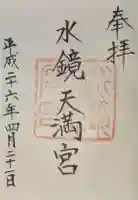 奉拝
水鏡天満宮
平成二十六年四月二十一日